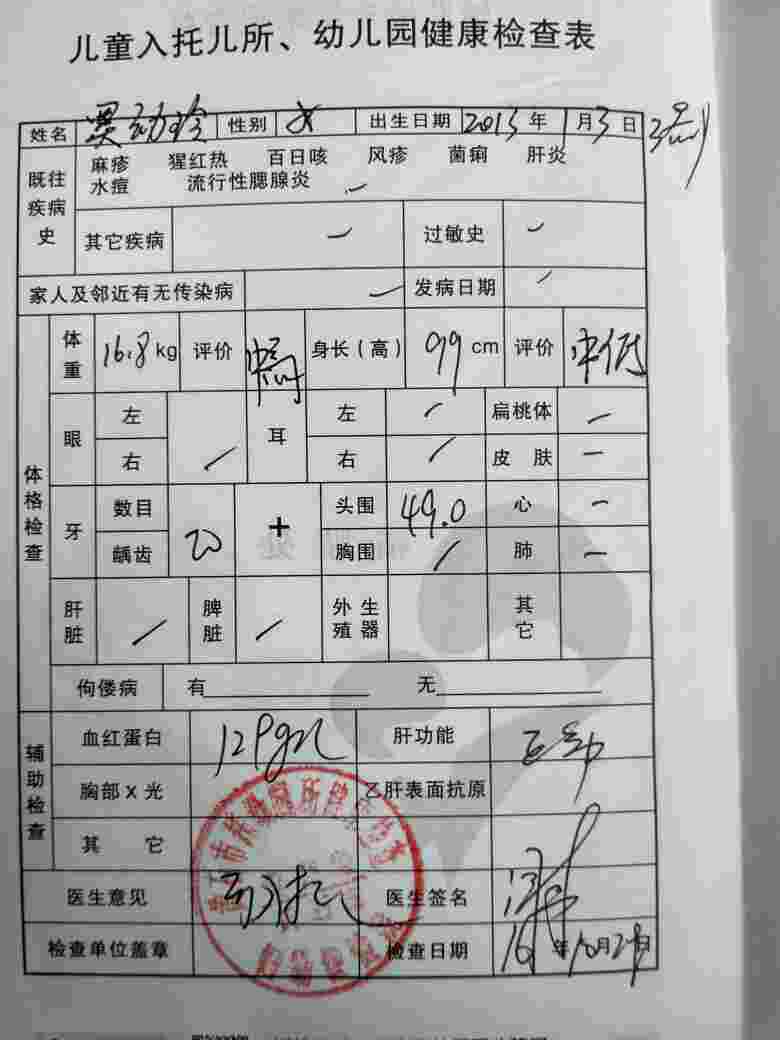 儿童入托儿所、幼儿园健康检查表
姓名 性别 女 出生日期 2013年1月3日 3岁
既往疾病史 麻疹 猩红热 百日咳 风疹 菌痢 肝炎
水痘 流行性腮腺炎 —
其它疾病 — 过敏史 —
家人及邻近有无传染病 — 发病日期 /
体格检查
体重 16.8kg 评价 身长(高) 99cm 评价 中低
眼 左 耳 左 / 扁桃体 —
右 / 右 / 皮肤 —
牙 数目 20 + 头围 49.0 心 —
龋齿 胸围 / 肺 —
肝脏 / 脾脏 / 外生殖器 其它
佝偻病 有 无
辅助检查
血红蛋白 129g/L 肝功能 正常
胸部X光 乙肝表面抗原
其它
医生意见 可入托 医生签名
检查单位盖章 检查日期 16年10月24日